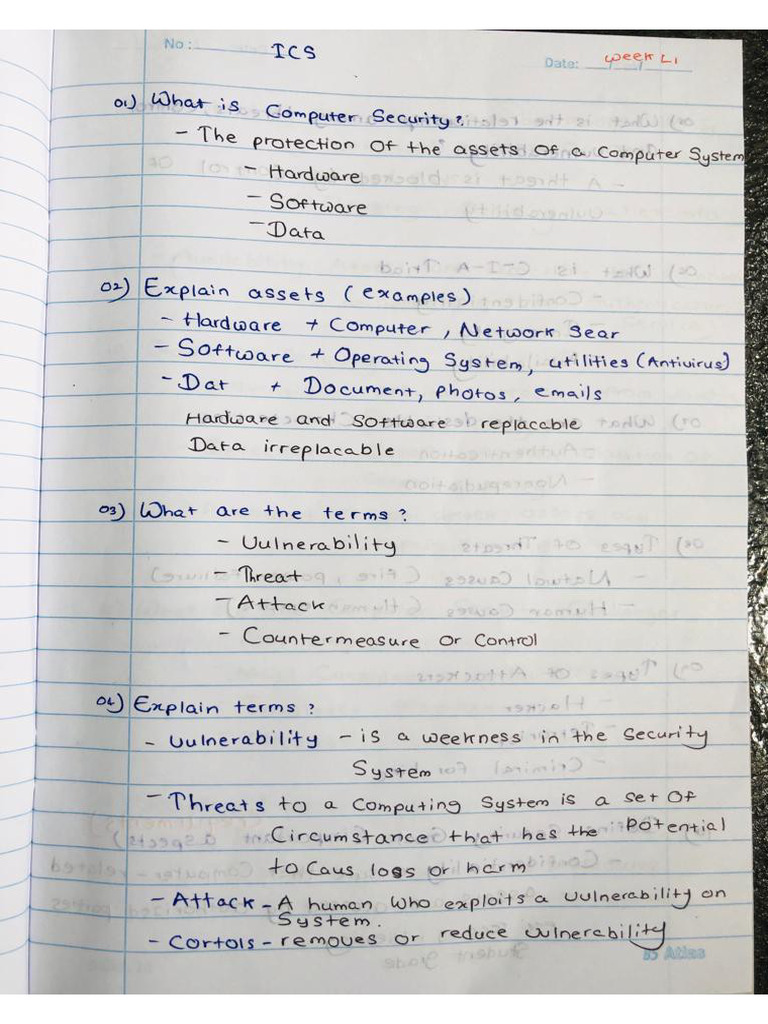 No: ICS
Date: Week L1
01) What is Computer Security?
- The protection of the assets of a Computer System
- Hardware
- Software
- Data
02) Explain assets (examples)
- Hardware + Computer, Network Sear
- Software + Operating System, utilities (Antivirus)
- Dat + Document, photos, emails
Hardware and Software replacable
Data irreplacable
03) What are the terms?
- Vulnerability
- Threat
- Attack
- Countermeasure or Control
04) Explain terms?
- Vulnerability - is a weekness in the Security
System
- Threats to a Computing System is a set of
Circumstance that has the Potential
to Caus loss or harm
- Attack - A human who exploits a vulnerability on
System.
- Cortols - removes or reduce vulnerability
Atlas